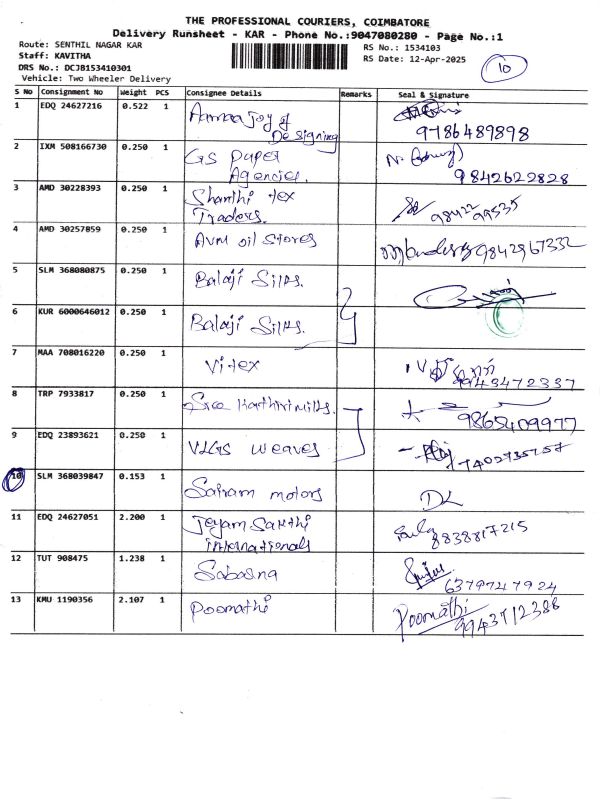 THE PROFESSIONAL COURIERS, COIMBATORE
Delivery Runsheet - KAR - Phone No.:9047080280 - Page No.:1
Route: SENTHIL NAGAR KAR
RS No.: 1534103
Staff: KAVITHA
RS Date: 12-Apr-2025
DRS No.: DCJB153410301
Vehicle: Two Wheeler Delivery
10
S No Consignment No Weight PCS Consignee Details Remarks Seal & Signature
1 EDQ 24627216 0.522 1 Ammaa Joy of
Designing
9786489898
2 IXM 508166730 0.250 1 GS Paper
Agencies.
9842622828
3 AMD 30228393 0.250 1 Shanthi tex
Traders.
98422 99535
4 AMD 30257859 0.250 1 AVM oil stores 9842967332
5 SLM 368080875 0.250 1 Balaji Silks.
6 KUR 6000646012 0.250 1 Balaji Silks.
7 MAA 708016220 0.250 1 Vitex
9943472337
8 TRP 7933817 0.250 1 Sree Harthivimills.
9865409977
9 EDQ 23893621 0.250 1 VLGS weaves 7402735757
10 SLM 368039847 0.153 1 Sairam motors
11 EDQ 24627051 2.200 1 Jeyam Sakthi
internationals
8838817215
12 TUT 908475 1.238 1 Sabasna
6379747924
13 KMU 1190356 2.107 1 Poomathi Poomathi
9943712388